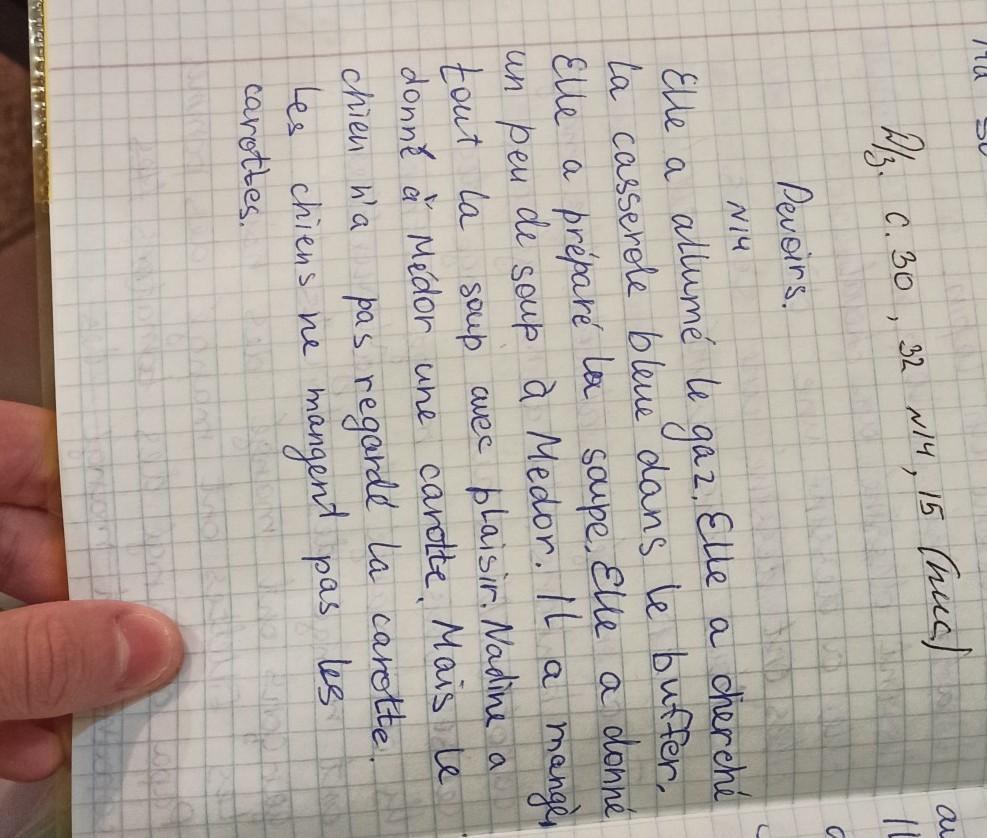 Д/з. с. 30, 32 №14, 15 (письм)
Devoirs.
№14
Elle a allumé le gaz. Elle a cherché
la casserole bleue dans le buffer.
Elle a préparé la soupe. Elle a donné
un peu de soup à Medor. Il a mangé,
tout la soup avec plaisir. Nadine a
donné à Médor une carotte. Mais le
chien n'a pas regardé la carotte.
Les chiens ne mangent pas les
carottes.